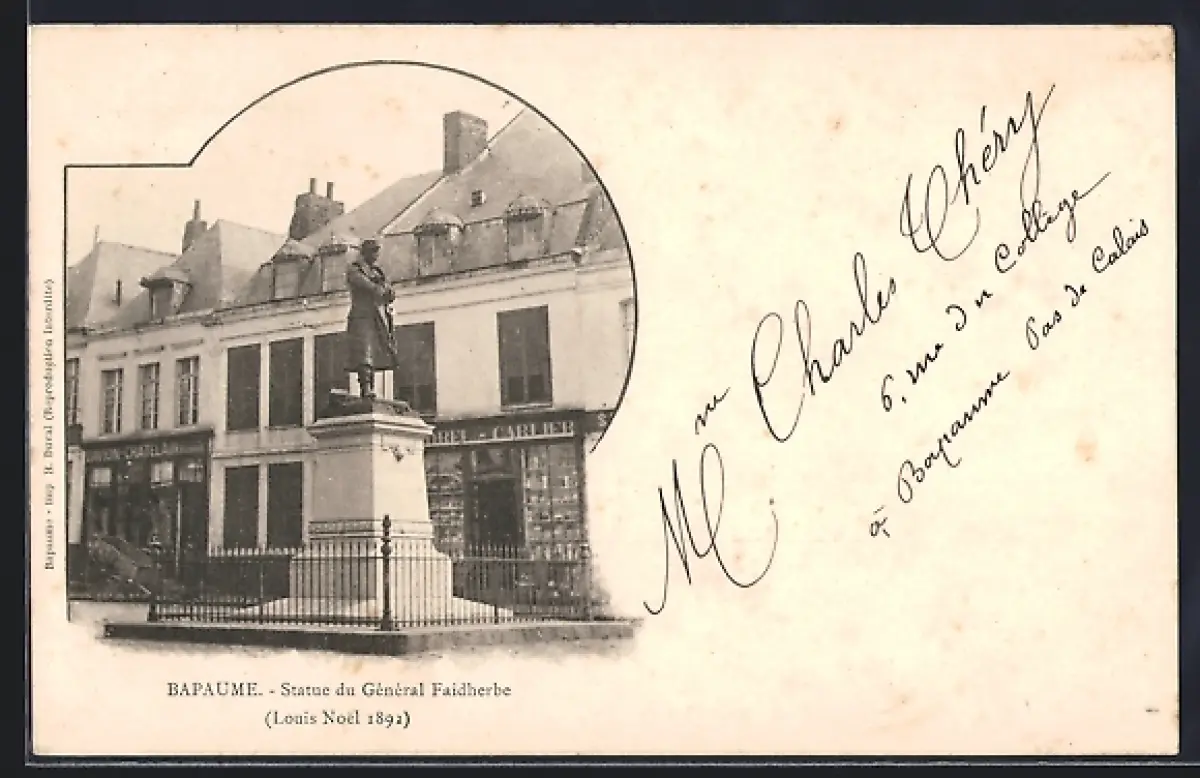 Bapaume - Imp. H. Duval (Reproduction Interdite)
CARLIER
BAPAUME. - Statue du Général Faidherbe
(Louis Noël 1892)
Mme Charles Théry
6, rue du Collège
à Bapaume Pas de Calais